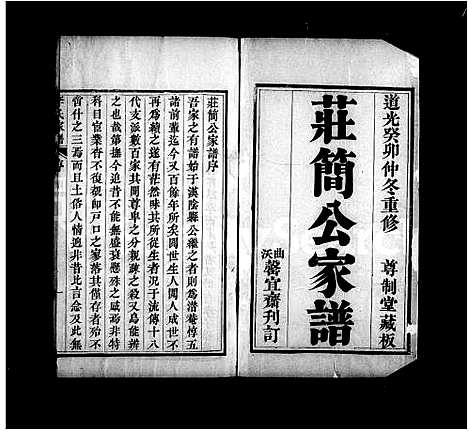 道光癸卯仲冬重修
尊制堂藏板
莊簡公家譜
曲沃
馨宜齋刊訂
莊簡公家譜序
吾家之有譜始于漢陰縣公繼之者則為潛菴惇五
諸前輩迄今又百餘年所矣閱世生人閱人成世不
再為續之遂有茫然昧其所從生者況于流傳十八
代支派數百家其間尊卑之分親疎之殺又烏能辨
之也哉第撫今追昔不能無盛衰懸殊之感焉非特
科目宦業者不復覯即戶口之家落其僅存者殆不
啻什之三焉而且土俗人情迥非昔比言念及此無